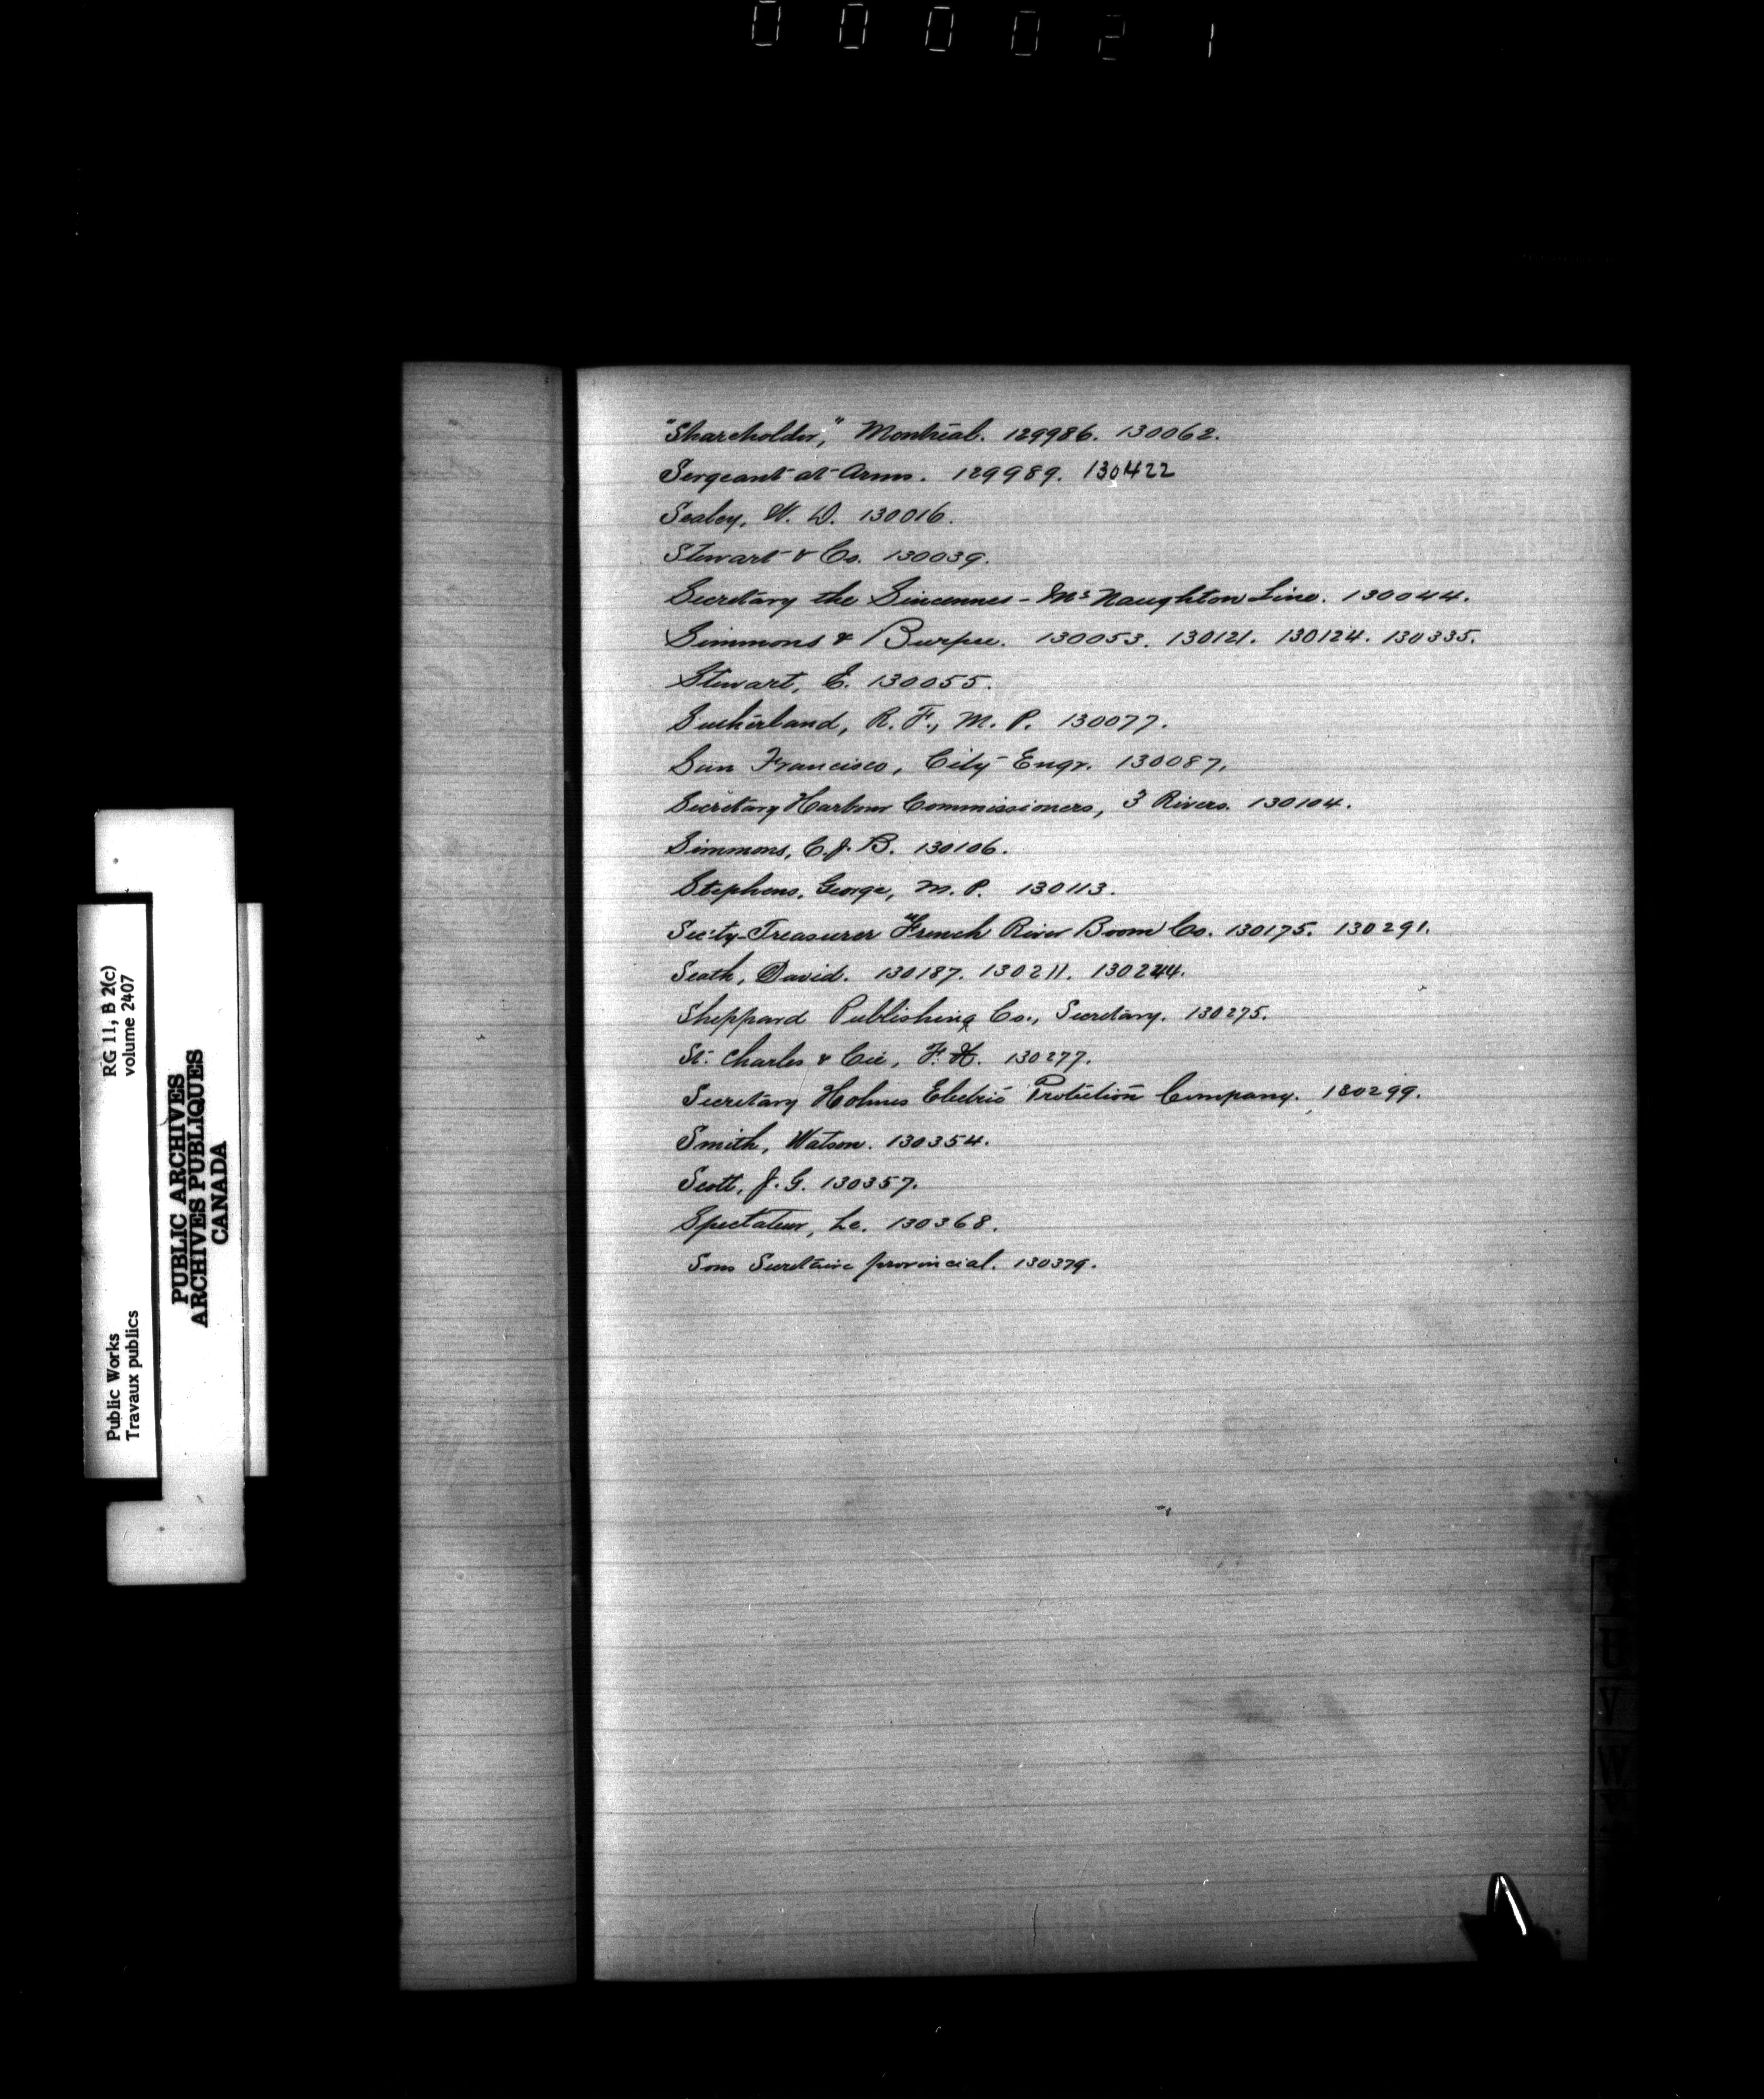 000021
"Shareholder," Montreal. 129986. 130062.
Sergeant-at-Arms. 129989. 130422
Sealey, W. D. 130016.
Stewart & Co. 130039.
Secretary the Sincennes-McNaughton Line. 130044.
Simmons & Burpee. 130053. 130121. 130124. 130335.
Stewart, E. 130055.
Sutherland, R. F., M. P. 130077.
San Francisco, City Engr. 130087.
Secretary Harbour Commissioners, 3 Rivers. 130104.
Simmons, C. J. B. 130106.
Stephens, George, M. P. 130113.
Sec'ty-Treasurer "French River Boom Co. 130175. 130291.
Seath, David. 130187. 130211. 130244.
Sheppard Publishing Co., Secretary. 130275.
St. Charles & Cie, F. X. 130277.
Secretary Holmes Electric Protection Company. 130299.
Smith, Watson. 130354.
Scott, J. G. 130357.
Spectateur, Le. 130368.
Sous Secrétaire provincial. 130379.
RG 11, B 2(c)
volume 2407
Public Works
Travaux publics
PUBLIC ARCHIVES
ARCHIVES PUBLIQUES
CANADA
U
V
W